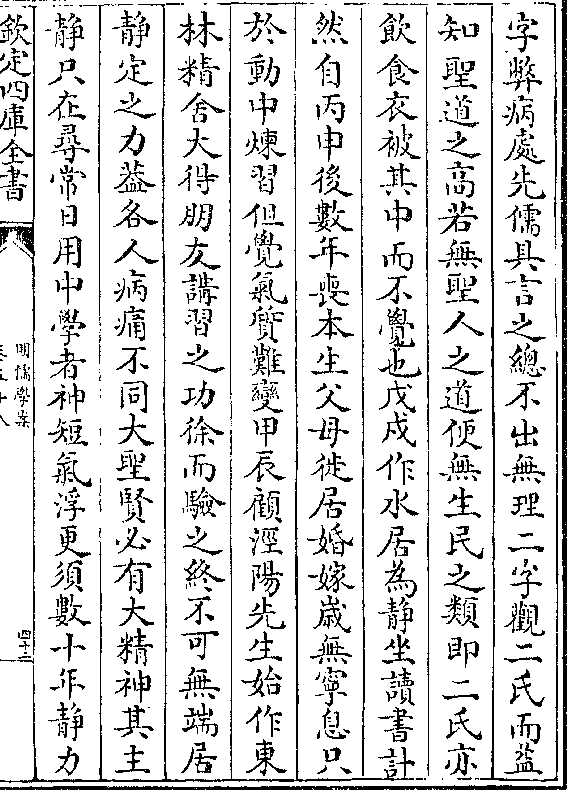 字弊病處先儒具言之總不出無理二字觀二氏而益
知聖道之高若無聖人之道便無生民之類即二氏亦
飲食衣被其中而不覺也戊戌作水居為静坐讀書計
然自丙申後數年喪本生父母徙居婚嫁歲無寧息只
於動中煉習但覺氣質難變甲辰顧涇陽先生始作東
林精舍大得朋友講習之功徐而驗之終不可無端居
静定之力葢各人病痛不同大聖賢必有大精神其主
静只在尋常日用中學者神短氣浮更須數十年静力
欽定四庫全書
明儒學案
卷五十八
四十三